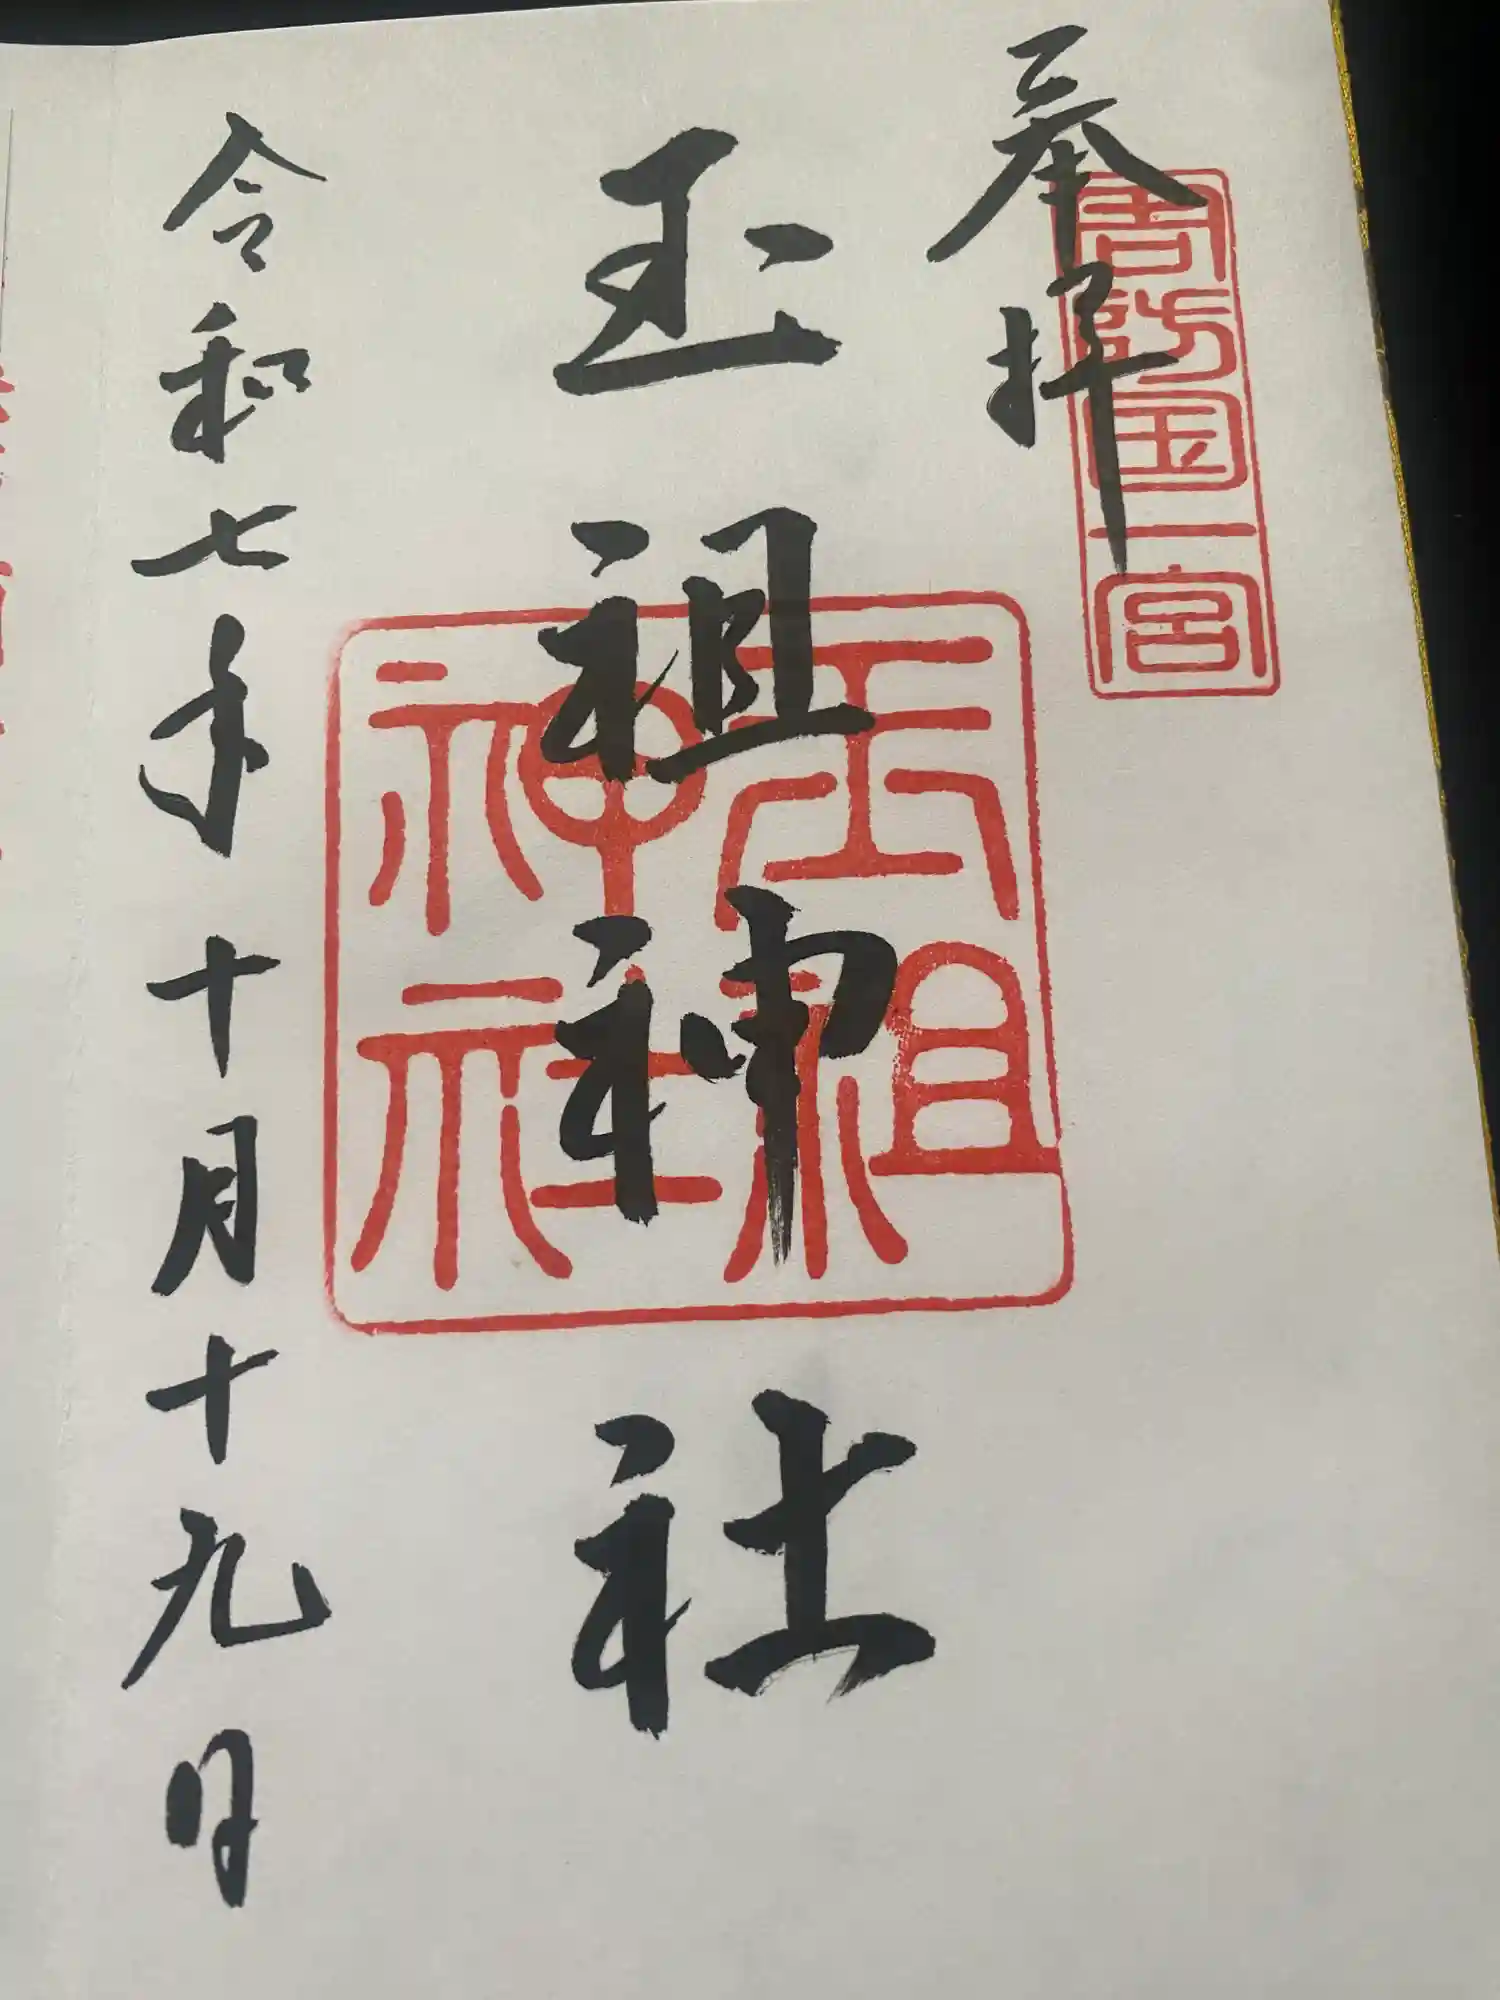 奉拝
周防国一宮
玉祖神社
玉祖
神社
令和七年十月十九日